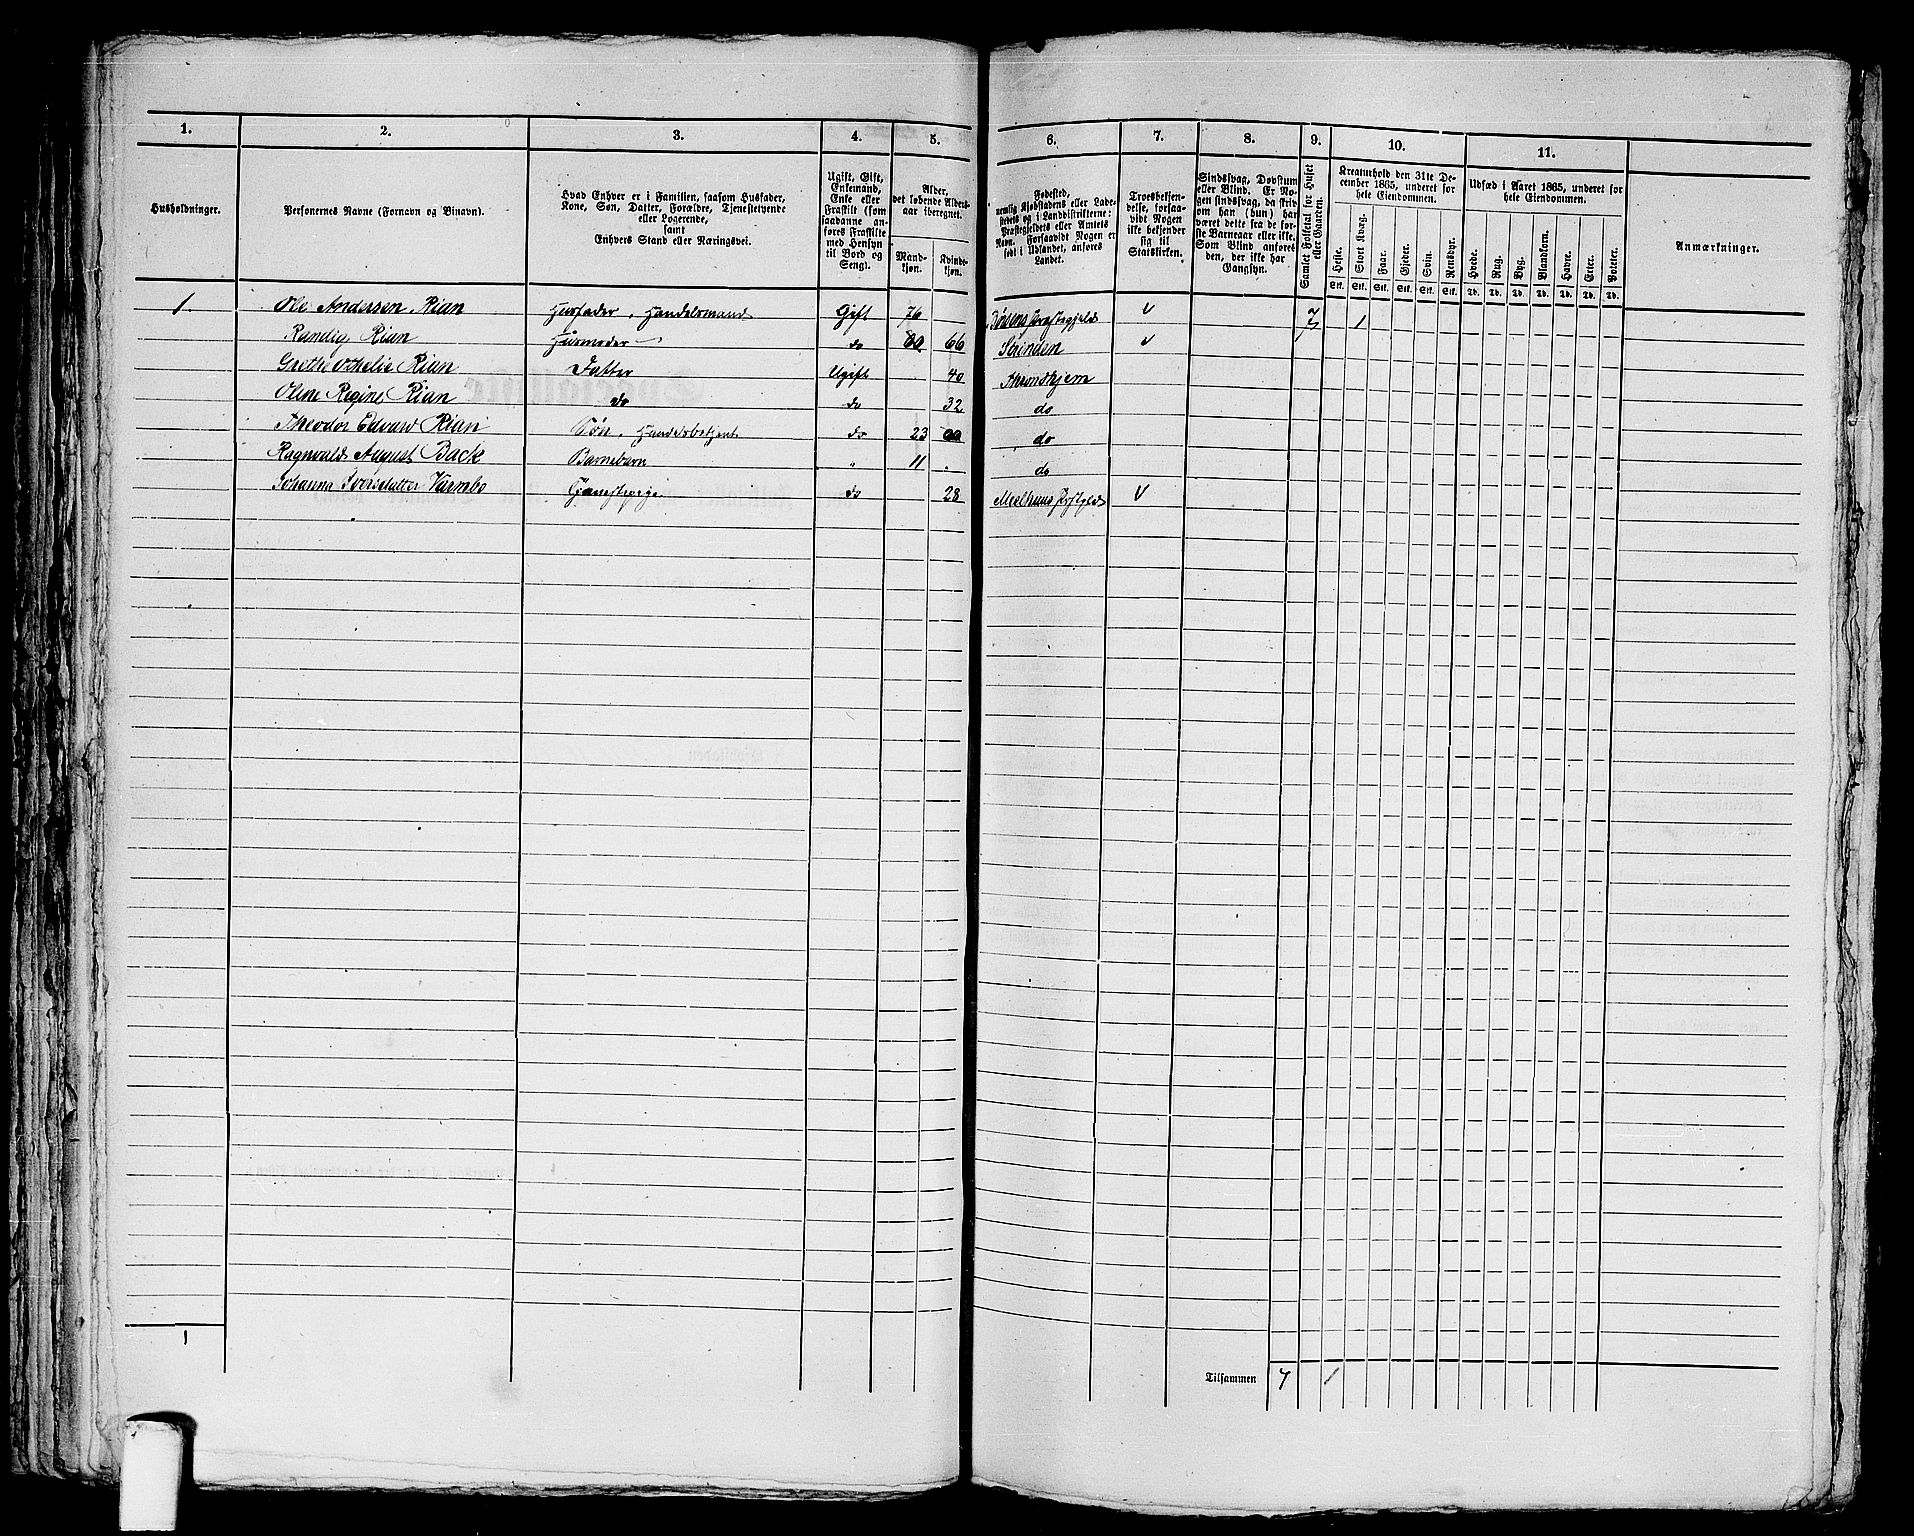 1. 2. 3. 4. 5. 6. 7. 8. 9. 10. 11.
Husholdninger.
Personernes Navne (Fornavn og Binavn).
Hvad Enhver er i Familien, saasom Husfader,
Kone, Søn, Datter, Forældre, Tjenestetyende
eller Logerende,
samt
Enhvers Stand eller Næringsvei.
Ugift, Gift,
Enkemand,
Enke eller
Fraskilt (som
saadanne an-
føres Fraskilte
med Hensyn
til Bord og
Seng).
Alder,
det løbende Alders-
aar iberegnet.
Mand-
kjøn.
Kvinde-
kjøn.
Fødested,
nemlig Kjøbstadens eller Lade-
stedets og i Landdistrikterne:
Præstegjeldets eller Amtets
Navn. Forsaavidt Nogen er
født i Udlandet, anføres
Landet.
Troesbekjen-
delse, forsaa-
vidt Nogen
ikke bekjender
sig til
Statskirken.
Sindssvag, Døvstum
eller Blind. Er No-
gen sindssvag, da skriv
om han (hun) har
været dette fra de før-
ste Barneaar eller ikke.
Som Blind anføres
den, der ikke har
Gangsyn.
Samlet Folketal for Huset
eller Gaarden.
Kreaturhold den 31te De-
cember 1865, underet for
hele Eiendommen.
Heste. Stort Kvæg. Faar. Gjeder. Svin. Rensdyr.
Stk. Stk. Stk. Stk. Stk. Stk.
Udsæd i Aaret 1865, underet for
hele Eiendommen.
Hvede. Rug. Byg. Blandkorn. Havre. Erter. Poteter.
Td. Td. Td. Td. Td. Td. Td.
Anmærkninger.
1 Ole Andersen Rian Husfader, Handelsmand Gift 76 Børsens Præstegjeld v 7 1
Randig Rian Husmoder do 66 Strinden v
Grethe Othelie Rian Datter Ugift 40 Throndhjem
Oline Regine Rian do do 32 do
Theodor Edvard Rian Søn, Handelsbetjent do 23 do
Ragnvald August Back Barnebarn " 11 do
Johanna Iversdatter Varmbo do 28 Meelhuus v
1
Tilsammen 7 1